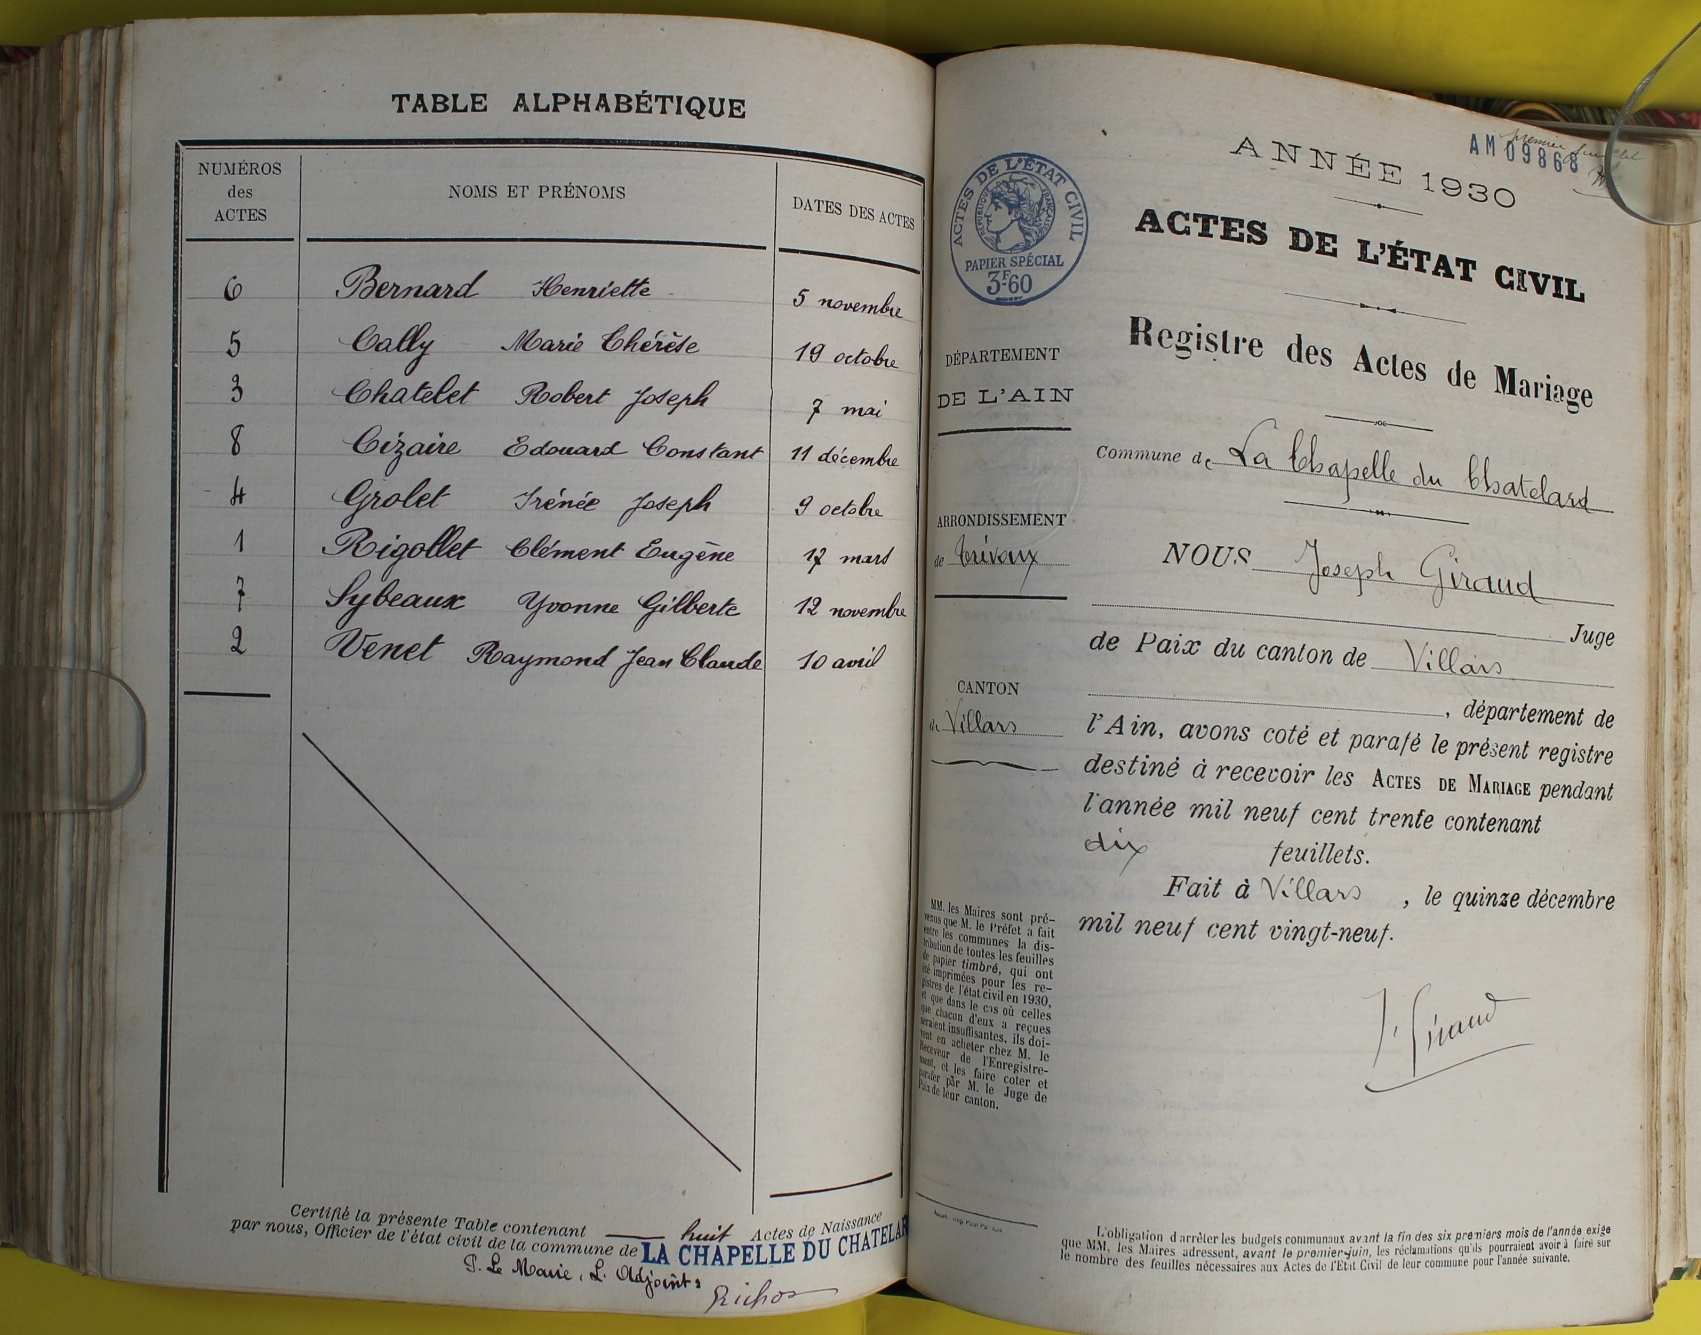 TABLE ALPHABÉTIQUE
NUMÉROS
des
ACTES
NOMS ET PRÉNOMS
DATES DES ACTES
6 Bernard Henriette 5 novembre
5 Cally Marie Thérèse 19 octobre
3 Chatelet Robert Joseph 7 mai
8 Cizaire Edouard Constant 11 décembre
4 Grolet Irénée Joseph 9 octobre
1 Rigollet Clément Eugène 17 mars
7 Sybeaux Yvonne Gilberte 12 novembre
2 Venet Raymond Jean Claude 10 avril
Certifié la présente Table contenant huit Actes de Naissance
par nous, Officier de l'état civil de la commune de LA CHAPELLE DU CHATELAR
P. Le Maire, L. Adjoint:
ANNÉE 1930
AM 09868
premier
ACTES DE L'ÉTAT CIVIL
PAPIER SPÉCIAL
3F60
ACTES DE L'ÉTAT CIVIL
Registre des Actes de Mariage
DÉPARTEMENT
DE L'AIN
Commune de La Chapelle du Chatelard
ARRONDISSEMENT
de Trévoux
NOUS Joseph Giraud
Juge
de Paix du canton de Villars
CANTON
de Villars
, département de
l'Ain, avons coté et parafé le présent registre
destiné à recevoir les ACTES DE MARIAGE pendant
l'année mil neuf cent trente contenant
dix feuillets.
Fait à Villars, le quinze décembre
mil neuf cent vingt-neuf.
J. Giraud
MM. les Maires sont pré-
venus que M. le Préfet a fait
entre les communes la dis-
tribution de toutes les feuilles
de papier timbré, qui ont
été imprimées pour les re-
gistres de l'état civil en 1930,
et que dans le cas où celles
que chacun d'eux a reçues
seraient insuffisantes, ils doi-
vent en acheter chez M. le
Receveur de l'Enregistre-
ment, et les faire coter et
parafer par M. le Juge de
Paix de leur canton.
L'obligation d'arrêter les budgets communaux avant la fin des six premiers mois de l'année exige
que MM. les Maires adressent, avant le premier juin, les réclamations qu'ils pourraient avoir à faire sur
le nombre des feuilles nécessaires aux Actes de l'État Civil de leur commune pour l'année suivante.